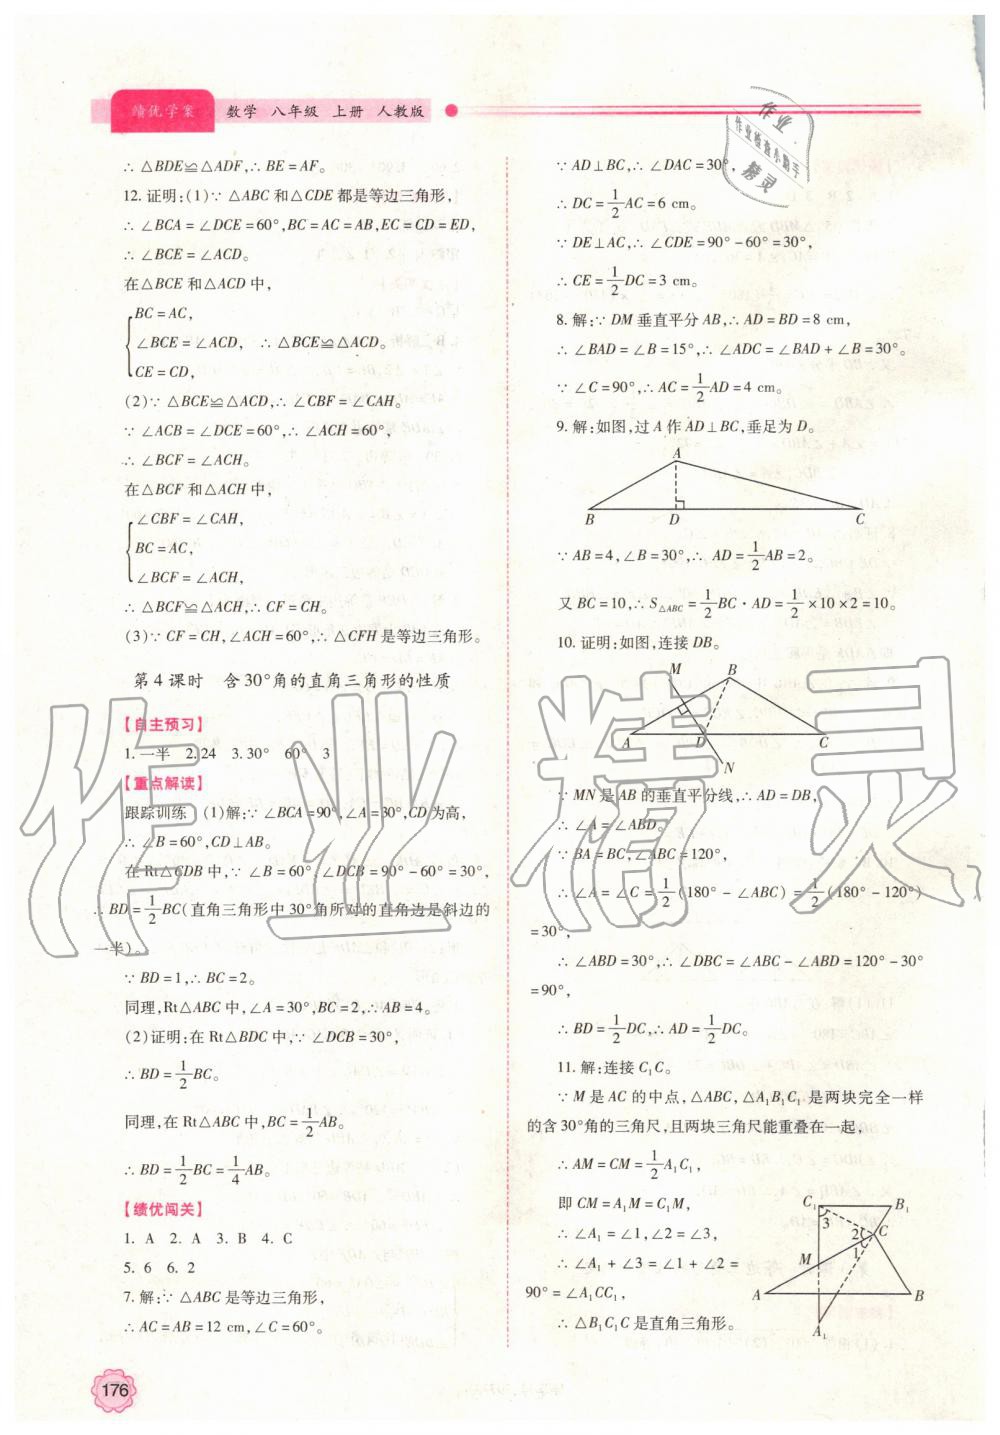 绩优学案 数学 八年级 上册 人教版
∴ △BDE≌△ADF,∴ BE = AF。
12. 证明:(1)∵ △ABC 和△CDE 都是等边三角形,
∴ ∠BCA = ∠DCE = 60°,BC = AC = AB,EC = CD = ED,
∴ ∠BCE = ∠ACD。
在△BCE 和△ACD 中,
BC = AC,
∠BCE = ∠ACD, ∴ △BCE≌△ACD。
CE = CD,
(2)∵ △BCE≌△ACD,∴ ∠CBF = ∠CAH。
∵ ∠ACB = ∠DCE = 60°,∴ ∠ACH = 60°,
∴ ∠BCF = ∠ACH。
在△BCF 和△ACH 中,
∠CBF = ∠CAH,
BC = AC,
∠BCF = ∠ACH,
∴ △BCF≌△ACH,∴ CF = CH。
(3)∵ CF = CH,∠ACH = 60°,∴ △CFH 是等边三角形。
第 4 课时 含 30°角的直角三角形的性质
【自主预习】
1. 一半 2. 24 3. 30° 60° 3
【重点解读】
跟踪训练 (1)解:∵ ∠BCA = 90°,∠A = 30°,CD 为高,
∴ ∠B = 60°,CD⊥AB。
在 Rt△CDB 中,∵ ∠B = 60°,∠DCB = 90° - 60° = 30°,
∴ BD = 1/2 BC(直角三角形中 30°角所对的直角边是斜边的
一半)。
∵ BD = 1,∴ BC = 2。
同理,Rt△ABC 中,∠A = 30°,BC = 2,∴ AB = 4。
(2)证明:在 Rt△BDC 中,∵ ∠DCB = 30°,
∴ BD = 1/2 BC。
同理,在 Rt△ABC 中,BC = 1/2 AB。
∴ BD = 1/2 BC = 1/4 AB。
【绩优闯关】
1. A 2. A 3. B 4. C
5. 6 6. 2
7. 解:∵ △ABC 是等边三角形,
∴ AC = AB = 12 cm,∠C = 60°。
176
∵ AD⊥BC,∴ ∠DAC = 30°,
∴ DC = 1/2 AC = 6 cm。
∵ DE⊥AC,∴ ∠CDE = 90° - 60° = 30°,
∴ CE = 1/2 DC = 3 cm。
8. 解:∵ DM 垂直平分 AB,∴ AD = BD = 8 cm,
∴ ∠BAD = ∠B = 15°,∴ ∠ADC = ∠BAD + ∠B = 30°。
∵ ∠C = 90°,∴ AC = 1/2 AD = 4 cm。
9. 解:如图,过 A 作 AD⊥BC,垂足为 D。
A
B D C
∵ AB = 4,∠B = 30°,∴ AD = 1/2 AB = 2。
又 BC = 10,∴ S△ABC = 1/2 BC · AD = 1/2 × 10 × 2 = 10。
10. 证明:如图,连接 DB。
M B
A D C
N
∵ MN 是 AB 的垂直平分线,∴ AD = DB,
∴ ∠A = ∠ABD。
∵ BA = BC,∠ABC = 120°,
∴ ∠A = ∠C = 1/2 (180° - ∠ABC) = 1/2 (180° - 120°)
= 30°,
∴ ∠ABD = 30°,∴ ∠DBC = ∠ABC - ∠ABD = 120° - 30°
= 90°,
∴ BD = 1/2 DC,∴ AD = 1/2 DC。
11. 解:连接 C₁C。
∵ M 是 AC 的中点,△ABC,△A₁B₁C₁ 是两块完全一样
的含 30°角的三角尺,且两块三角尺能重叠在一起,
∴ AM = CM = 1/2 A₁C₁,
即 CM = A₁M = C₁M,
∴ ∠A₁ = ∠1,∠2 = ∠3,
∴ ∠A₁ + ∠3 = ∠1 + ∠2 =
90° = ∠A₁CC₁,
∴ △B₁C₁C 是直角三角形。
C₁ B₁
3 2 C
1
M
A B
A₁
作业
作业检查小助手
精灵
作业精灵